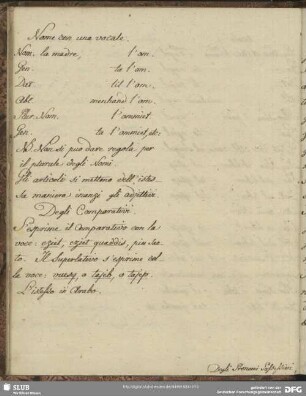 Nome con una vocale.
Nom. la madre, l'om.
Gen. ta l'om.
Dat. lil l'om.
Abl. l'om.
Plur. Nom. l'ommiet.
Gen. ta l'ommiet, etc.
NB. Non si può dare regola, per
il plurale degli Nomi.
Gli articoli si mettono nell' istes-
sa maniera inanzi gli adjettivi.
Degli Comparativi
S'esprime il Comparativo con la
voce: ozjed, ozjet quaddis, piu san-
to. Il Superlativo s'esprime col-
la voce: o
L'istesso in Arabo.
Degli Pronomi
SLUB